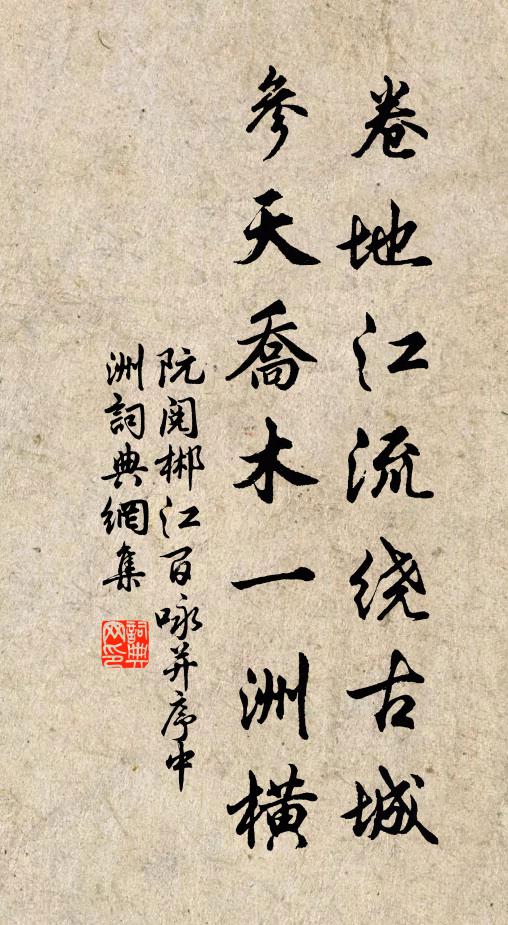 卷地江流绕古城
參天喬木一洲橫
阮閱郴江百咏并序中
洲詞典網集
詞典
网印